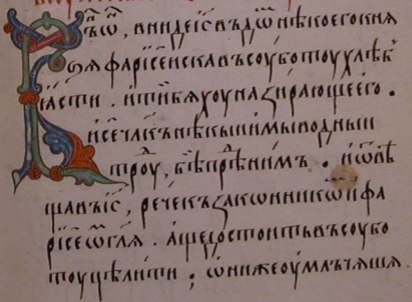 Въ ѡ҆, вниде і҃с въ дѡⷨ нѣкоего кнѧ
ꙁѧ фарїсеиска въ соуботоу хлѣбъ
ꙗсти . и тїи бѧхоу наꙁирающе его .
И се чл҃къ нѣкыи имы водныи
троуⷣ, бѣ прѣⷣ нимъ . и ѿвѣ
щавъ і҃с, рече къ ꙁаконникѡⷨ и фа
рїсеѡⷨ гл҃ѧ . аще достоитъ въ соубо
тоу цѣлити ; ѡни же оумлъчашѧ .